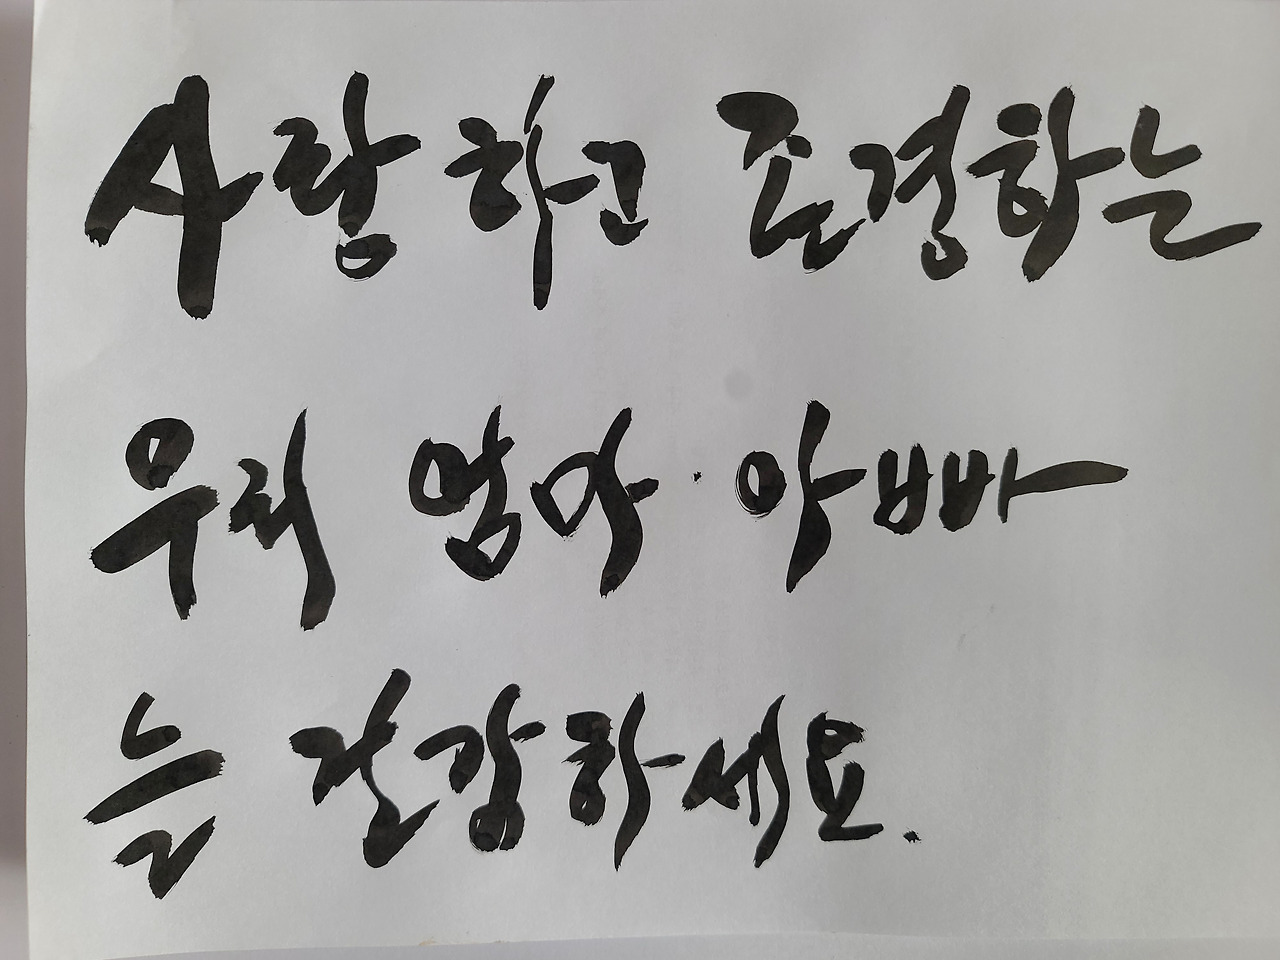 사랑하고 존경하는
우리 엄마·아빠
늘 건강하세요.